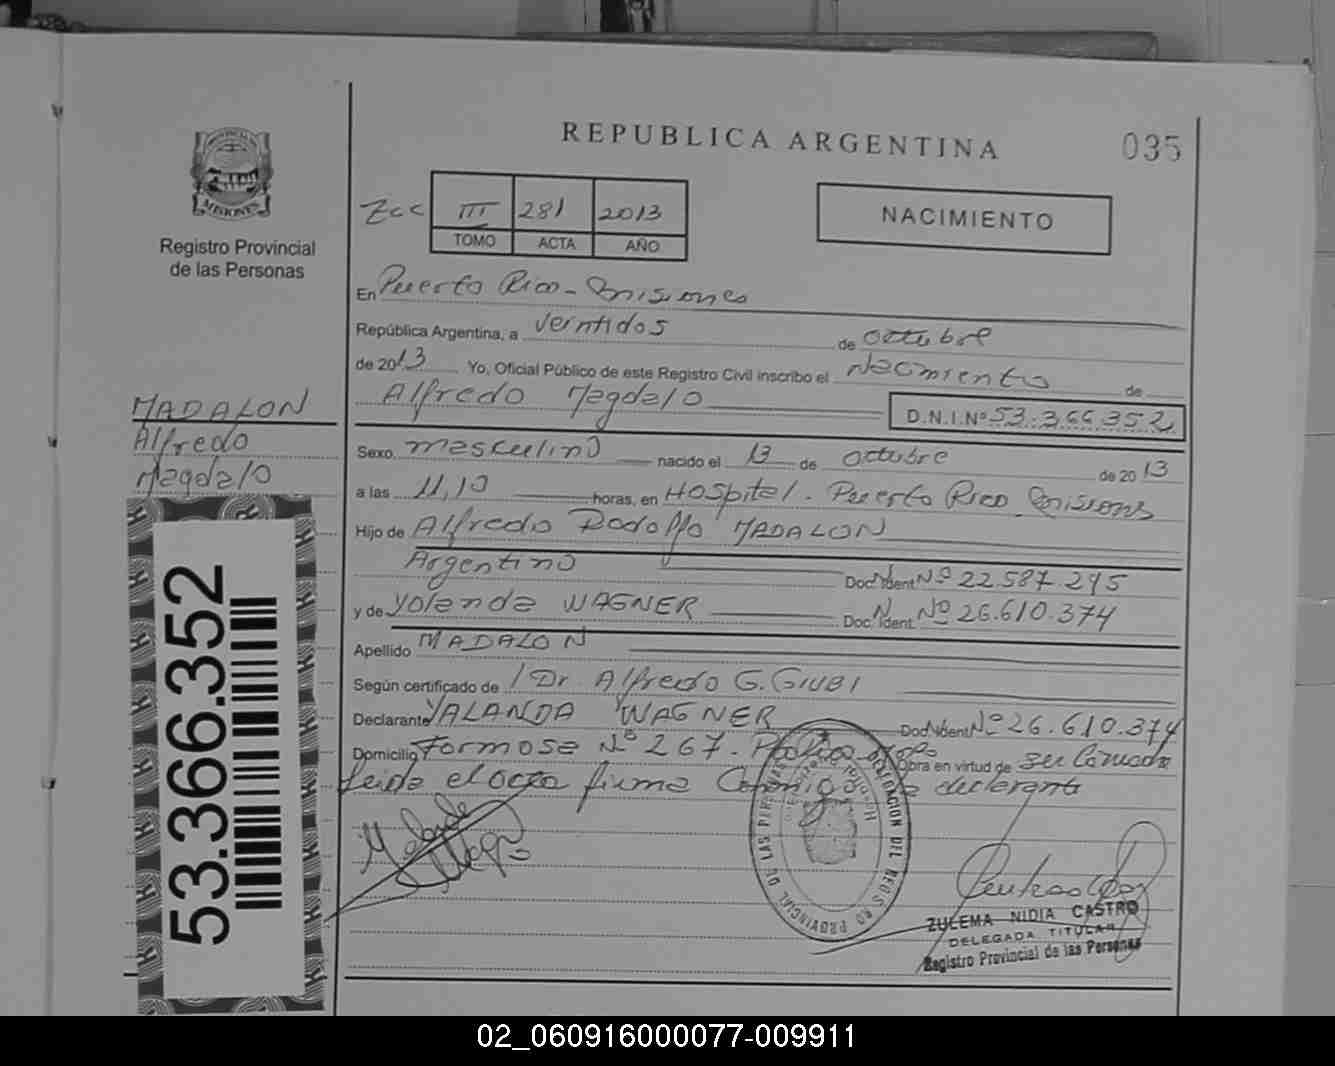 REPUBLICA ARGENTINA
035
PROVINCIA DE
MISIONES
Registro Provincial
de las Personas
III 281 2013
TOMO ACTA AÑO
NACIMIENTO
En Puerto Rico - Misiones
República Argentina, a veintidos de octubre
de 2013 Yo, Oficial Público de este Registro Civil inscribo el Nacimiento de
Alfredo Magdalo D.N.I.Nº 53.366.352
MADALON
Alfredo
Magdalo
Sexo masculino nacido el 13 de octubre de 2013
a las 11,10 horas, en Hospital. Puerto Rico - Misiones
Hijo de Alfredo Rodolfo MADALON
Argentino Doc. Ident. Nº 22.587.295
y de Yolanda WAGNER Doc. Ident. Nº 26.610.374
Apellido MADALON
Según certificado de Dr. Alfredo G. GIUBI
Declarante YALANDA WAGNER Doc. Ident. Nº 26.610.374
Domicilio Formosa Nº 267. Obra en virtud de
Leida el acta firma Conmigo la declarante
DELEGACION DEL REGISTRO PROVINCIAL DE LAS PERSONAS
ZULEMA NIDIA CASTRO
DELEGADA TITULAR
Registro Provincial de las Personas
53.366.352
02_060916000077-009911